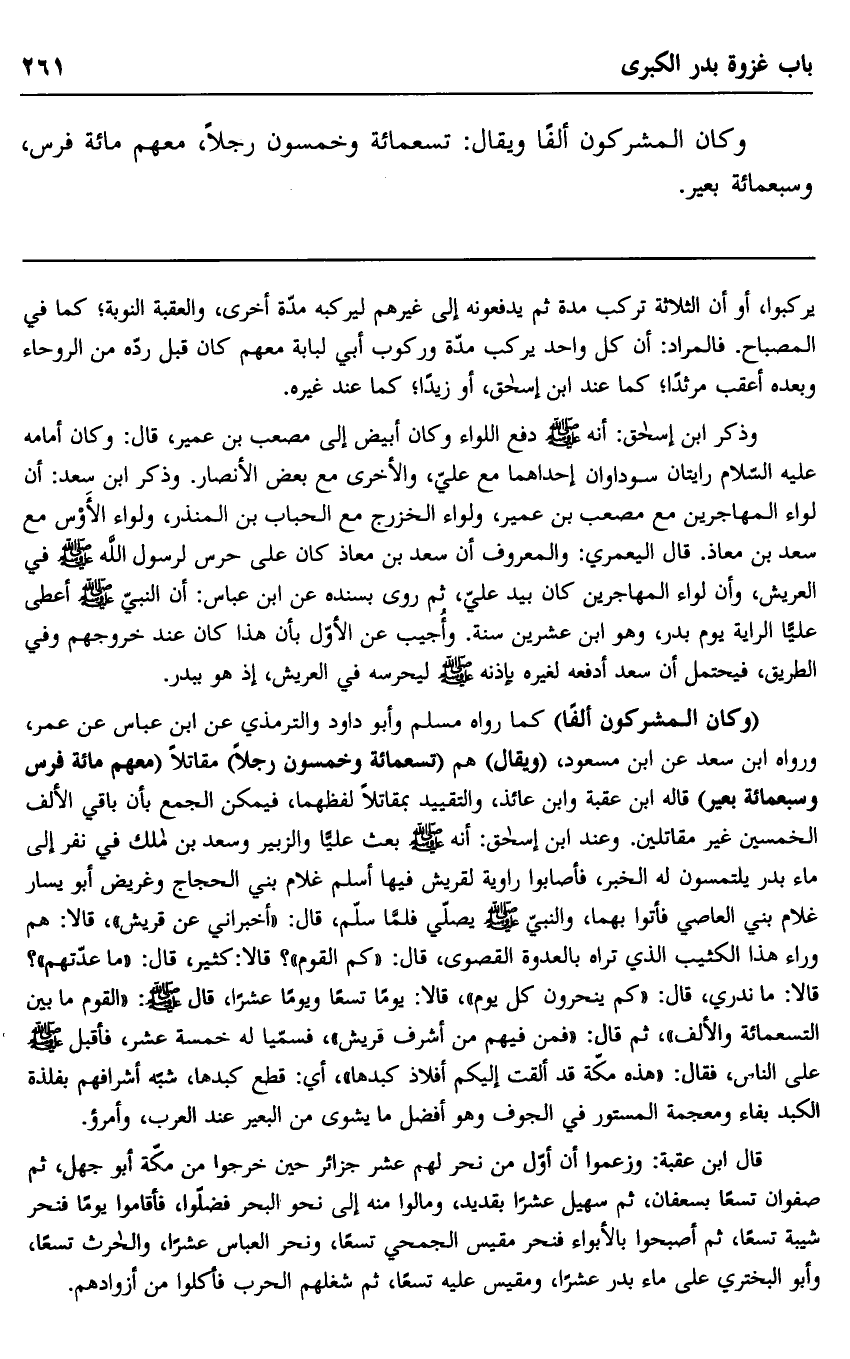 باب غزوة بدر الكبرى ٢٦١
وكان المشركون ألفًا ويقال: تسعمائة وخمسون رجلاً، معهم مائة فرس،
وسبعمائة بعير.
يركبوا، أو أن الثلاثة تركب مدة ثم يدفعونه إلى غيرهم ليركبه مدّة أخرى، والعقبة النوبة؛ كما في
المصباح. فالمراد: أن كل واحد يركب مدّة وركوب أبي لبابة معهم كان قبل ردّه من الروحاء
وبعده أعقب مرثدًا؛ كما عند ابن إسحٰق، أو زيدًا؛ كما عند غيره.
وذكر ابن إسحٰق: أنه ﷺ دفع اللواء وكان أبيض إلى مصعب بن عمير، قال: وكان أمامه
عليه السّلام رايتان سوداوان إحداهما مع عليّ، والأخرى مع بعض الأنصار. وذكر ابن سعد: أن
لواء المهاجرين مع مصعب بن عمير، ولواء الخزرج مع الحباب بن المنذر، ولواء الأَوْس مع
سعد بن معاذ. قال اليعمري: والمعروف أن سعد بن معاذ كان على حرس لرسول اللَّه ﷺ في
العريش، وأن لواء المهاجرين كان بيد عليّ، ثم روى بسنده عن ابن عباس: أن النبيّ ﷺ أعطى
عليًّا الراية يوم بدر، وهو ابن عشرين سنة. وأُجيب عن الأوّل بأن هذا كان عند خروجهم وفي
الطريق، فيحتمل أن سعد أدفعه لغيره بإذنه ﷺ ليحرسه في العريش، إذ هو ببدر.
(وكان المشركون ألفًا) كما رواه مسلم وأبو داود والترمذي عن ابن عباس عن عمر،
ورواه ابن سعد عن ابن مسعود، (ويقال) هم (تسعمائة وخمسون رجلاً) مقاتلاً (معهم مائة فرس
وسبعمائة بعير) قاله ابن عقبة وابن عائذ، والتقييد بمقاتلاً لفظهما، فيمكن الجمع بأن باقي الألف
الخمسين غير مقاتلين. وعند ابن إسحٰق: أنه ﷺ بعث عليًّا والزبير وسعد بن مٰلك في نفر إلى
ماء بدر يلتمسون له الخبر، فأصابوا راوية لقريش فيها أسلم غلام بني الحجاج وغريض أبو يسار
غلام بني العاصي فأتوا بهما، والنبيّ ﷺ يصلّي فلمَّا سلّم، قال: «أخبراني عن قريش»، قالا: هم
وراء هذا الكثيب الذي تراه بالعدوة القصوى، قال: «كم القوم»؟ قالا: كثير، قال: «ما عدّتهم»؟
قالا: ما ندري، قال: «كم ينحرون كل يوم»، قالا: يومًا تسعًا ويومًا عشرًا، قال ﷺ: «القوم ما بين
التسعمائة والألف»، ثم قال: «فمن فيهم من أشرف قريش»، فسمّيا له خمسة عشر، فأقبل ﷺ
على الناس، فقال: «هذه مكّة قد ألقت إليكم أفلاذ كبدها»، أي: قطع كبدها، شبّه أشرافهم بفلذة
الكبد بفاء ومعجمة المستور في الجوف وهو أفضل ما يشوى من البعير عند العرب، وأمرؤ.
قال ابن عقبة: وزعموا أن أوّل من نحر لهم عشر جزائر حين خرجوا من مكّة أبو جهل، ثم
صفوان تسعًا بسعفان، ثم سهيل عشرًا بقديد، ومالوا منه إلى نحو البحر فضلّوا، فأقاموا يومًا فنحر
شيبة تسعًا، ثم أصبحوا بالأبواء فنحر مقيس الجمحي تسعًا، ونحر العباس عشرًا، والحٰرث تسعًا،
وأبو البختري على ماء بدر عشرًا، ومقيس عليه تسعًا، ثم شغلهم الحرب فأكلوا من أزوادهم.